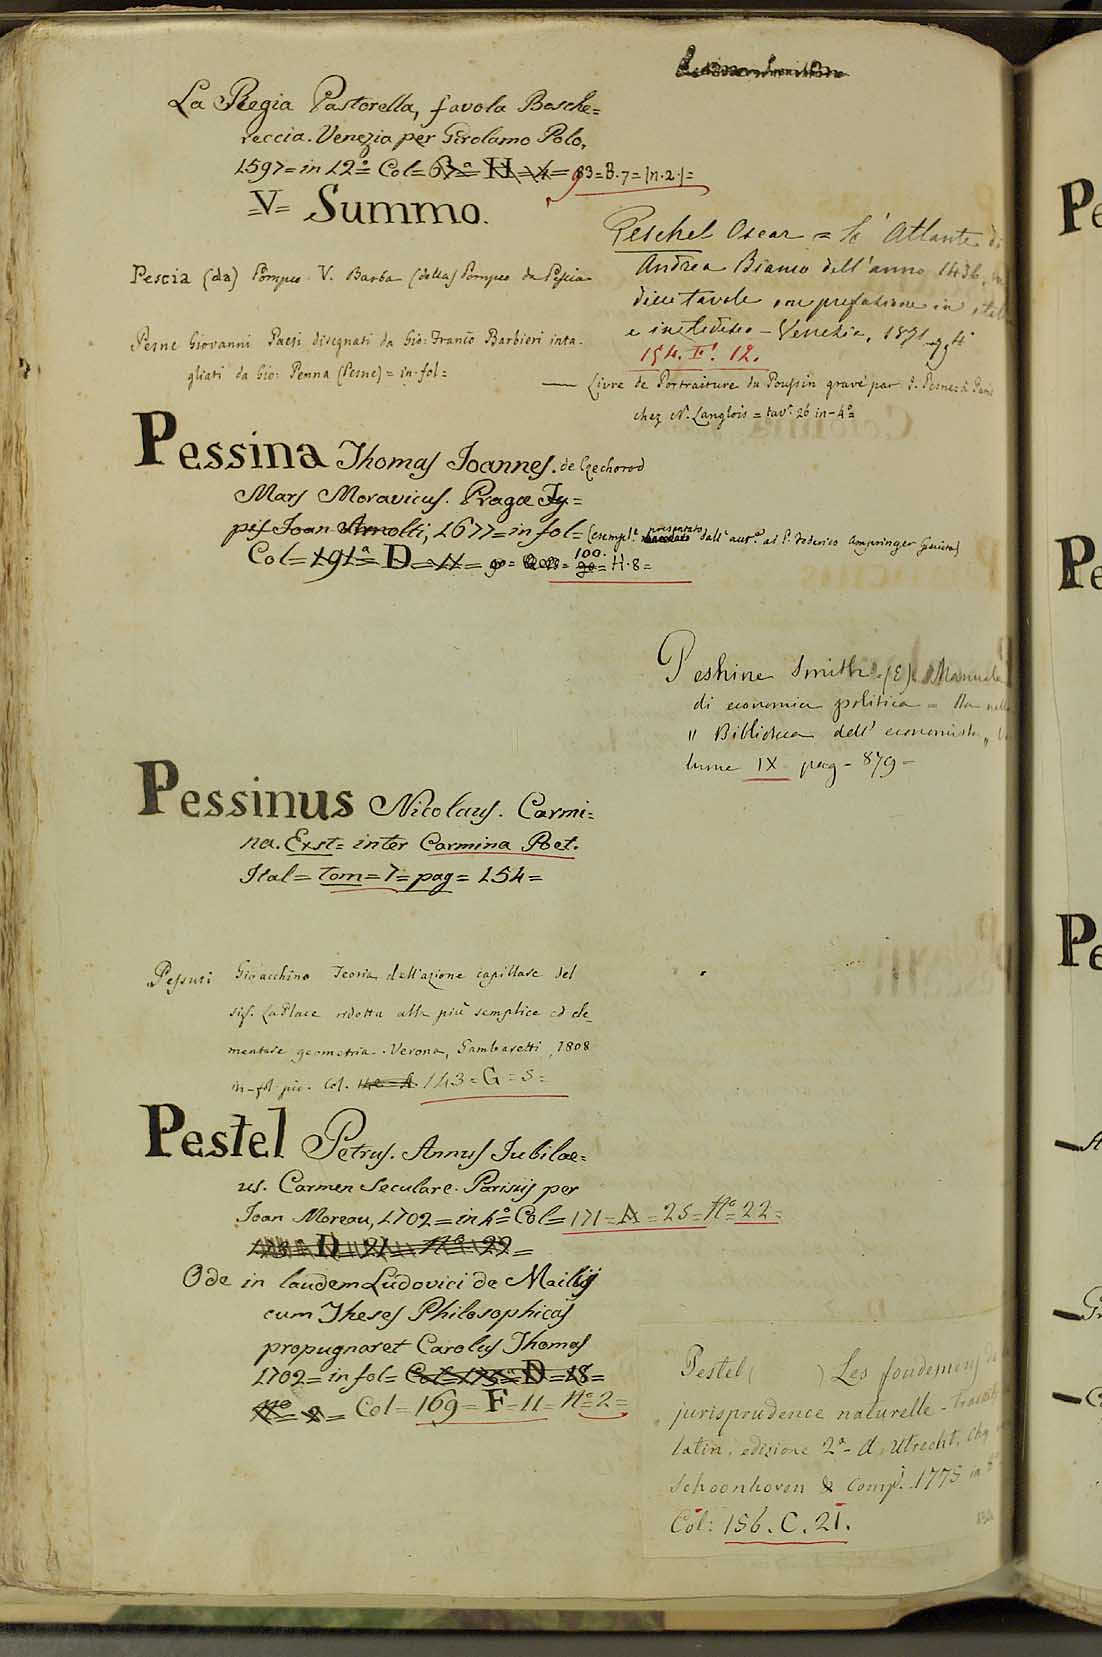 La Regia Pastorella, favola Bosche=
reccia. Venezia per Girolamo Polo,
1597= in 12°= Col= 67ª= H= 4= 83=B.7=|n.2.|=
=V= Summo.
Pescia (da) Pompeo V. Barba (della) Pompeo da Pescia
Pesne Giovanni Paesi disegnati da Gio: Franco Barbieri inta-
gliati da Gio: Penna (Pesne) = in-fol=
Peschel Oscar = L'Atlante di
Andrea Bianco dell'anno 1436, in
dieci tavole con prefazione in ital
e in tedesco - Venezia, 1871 4°
154. F. 12.
— Livre de Portraiture du Poussin gravé par J. Pesne à Paris
chez N. Langlois = tav. 26 in-4°=
Pessina Thomas Joannes. de Czechorod
Mars Moravicus. Pragæ Ty=
pis Joan Arnolti, 1677= in fol= (esempl.e presentato dall'aut.e al P. Federico Ampringer Gesuita)
Col= 191ª= D= 11= 100.= H.8=
Peshine Smith (E) Manuale
di economia politica = Sta nella
"Biblioteca dell'economista„ Vo
lume IX pag- 879-
Pessinus Nicolaus. Carmi=
na. Exst= inter Carmina Poet.
Ital= tom= 7= pag= 154=
Pessuti Gioacchino Teoria dell'azione capillare del
sig. LaPlace ridotta alla più semplice ed ele-
mentare geometria. Verona, Gambaretti, 1808
in-fol. pic. Col. 143=G=5=
Pestel Petrus. Annus Jubilæ=
us. Carmen Seculare. Parisiis per
Joan Moreau, 1702= in 4°= Col= 171= A= 25= N°= 22=
D= 21= N°= 22=
Ode in laudem Ludovici de Mailly
cum Theses Philosophicas
propugnaret Carolus Thomas
1702= in fol= Col= 173= D= 18=
N°= 2= Col= 169= F= 11= N°= 2=
Pestel ( ) Les fondemens de la
jurisprudence naturelle - Traduit
latin, edizione 2ª- A Utrecht, chez
Schoonhoven & comp. 1775 in 8°
Col: 156. C. 21.
Pe
Pe
Pe